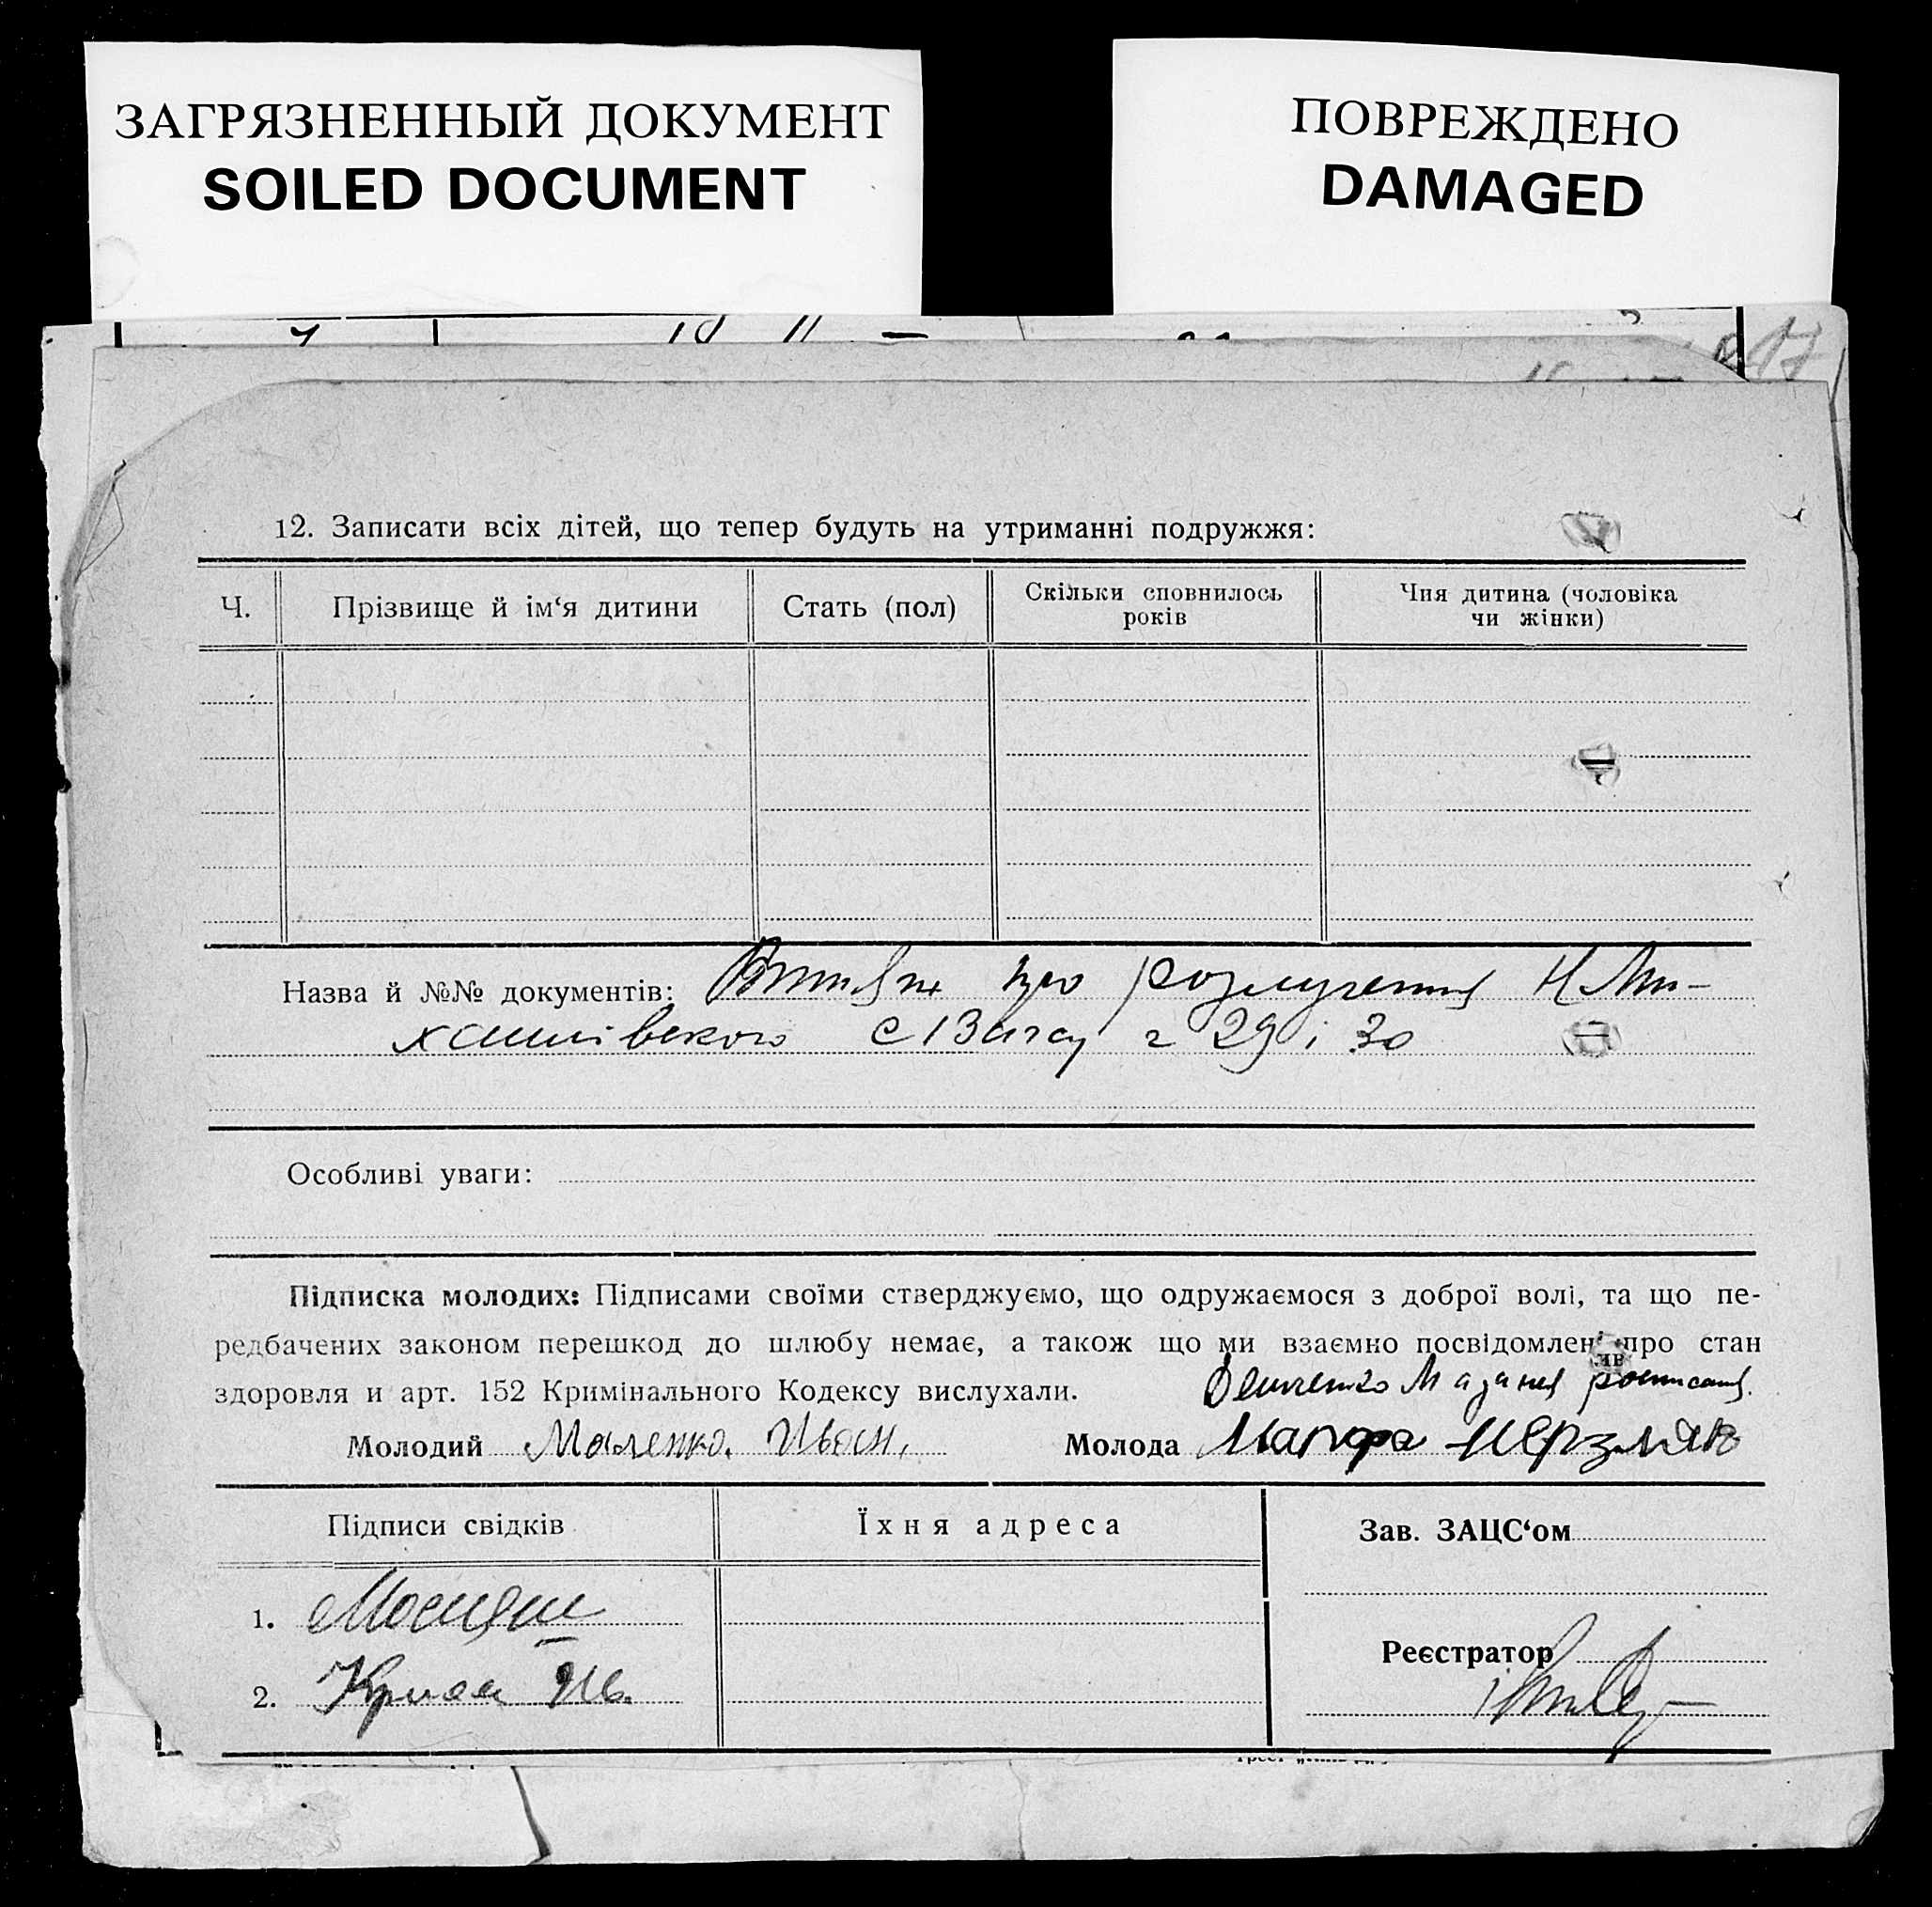 ЗАГРЯЗНЕННЫЙ ДОКУМЕНТ
SOILED DOCUMENT
ПОВРЕЖДЕНО
DAMAGED
12. Записати всіх дітей, що тепер будуть на утриманні подружжя:
Ч.
Прізвище й ім‘я дитини
Стать (пол)
Скільки сповнилось
років
Чия дитина (чоловіка
чи жінки)
Назва й №№ документів: про розлучення
29 і 30
Особливі уваги:
Підписка молодих: Підписами своїми стверджуємо, що одружаємося з доброї волі, та що пе-
редбачених законом перешкод до шлюбу немає, а також що ми взаємно посвідомлені про стан
здоровля и арт. 152 Кримінального Кодексу вислухали.
Молодий Маленко Иван
Молода Марфа
Підписи свідків
Їхня адреса
Зав. ЗАЦС‘ом
1.
Реєстратор
2.